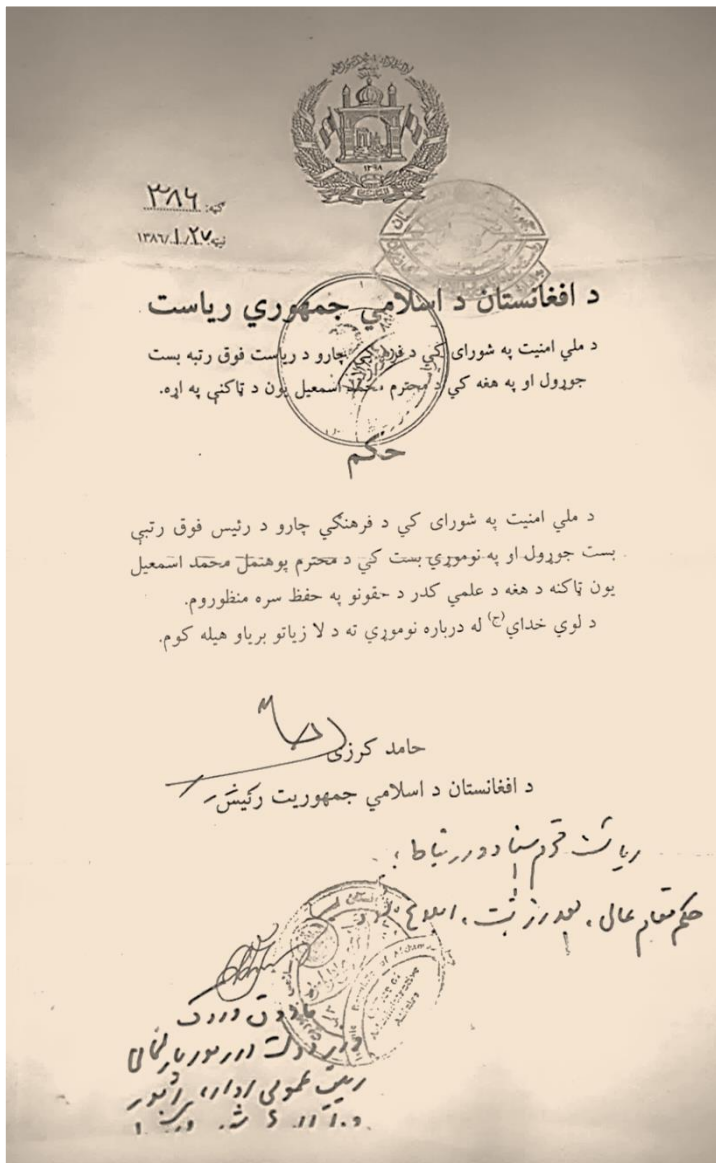 ۱۳۹۸
ګڼه: ۳۸۶
نېټه: ۱۳۸۶/۱/۲۷
د افغانستان د اسلامي جمهوري ریاست
د ملي امنیت په شورای کي د فرهنګي چارو د ریاست فوق رتبه بست
جوړول او په هغه کي د محترم محمد اسمعیل یون د ټاکنې په اړه.
حکم
د ملي امنیت په شورای کي د فرهنګي چارو د رئیس فوق رتبې
بست جوړول او په نوموړي بست کي د محترم پوهنمل محمد اسمعیل
یون ټاکنه د هغه د علمي کدر د حقونو په حفظ سره منظوروم.
د لوي خدای(ج) له درباره نوموړي ته د لا زیاتو بریاو هیله کوم.
حامد کرزی
د افغانستان د اسلامي جمهوریت رئیس
ریاست محترم اسناد و ارتباط:
حکم مقام عالی، بعد از ثبت،
فاروق وردک
وزیر دولت در امور پارلمانی
رئیس عمومی اداره امور